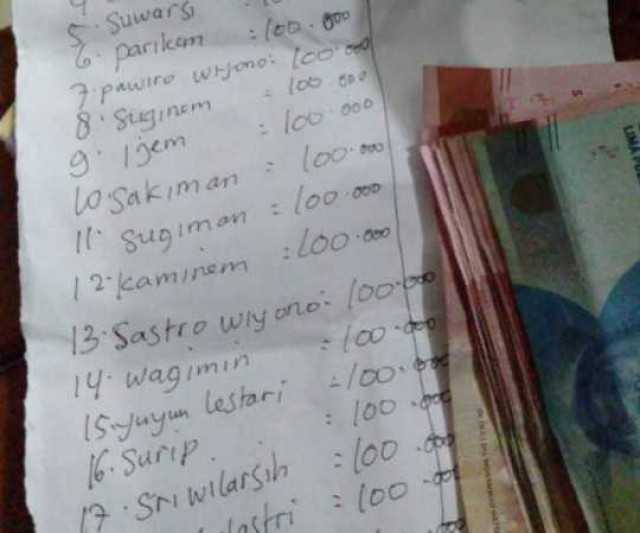 5. Suwarsi
6. parikem : 100.000
7. pawiro wrjono: 100.000
8. Suginem : 100 000
9. Ijem : 100.000
10. Sakiman : 100.000
11. Sugiman = 100.000
12. kaminem : 100.000
13. Sastro wiyono: 100.000
14. wagimin : 100.000
15. yuyun lestari : 100.000
16. Surip : 100.000
17. Sri wilarsih : 100.000
lastri : 100.000